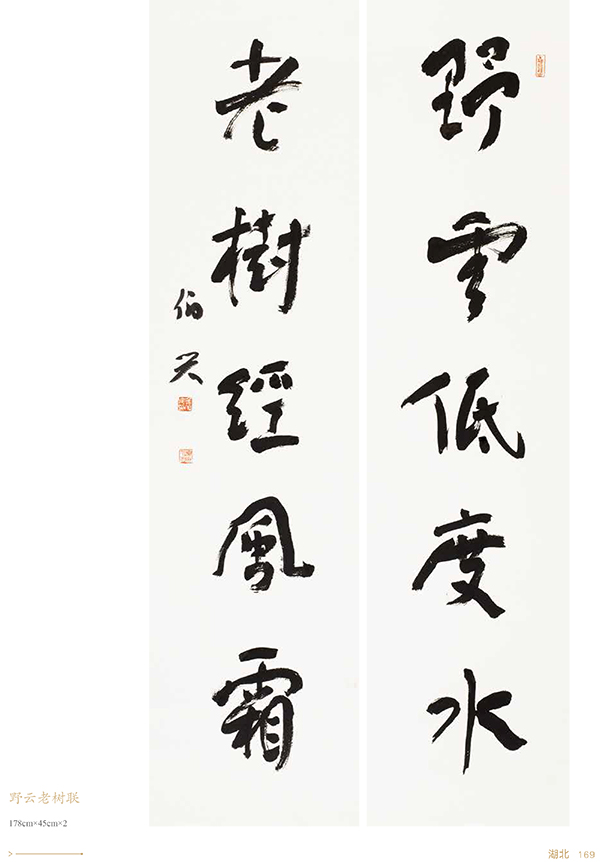 野雲低度水
老樹經風霜
伯兴
野云老树联
178cm×45cm×2
湖北 169